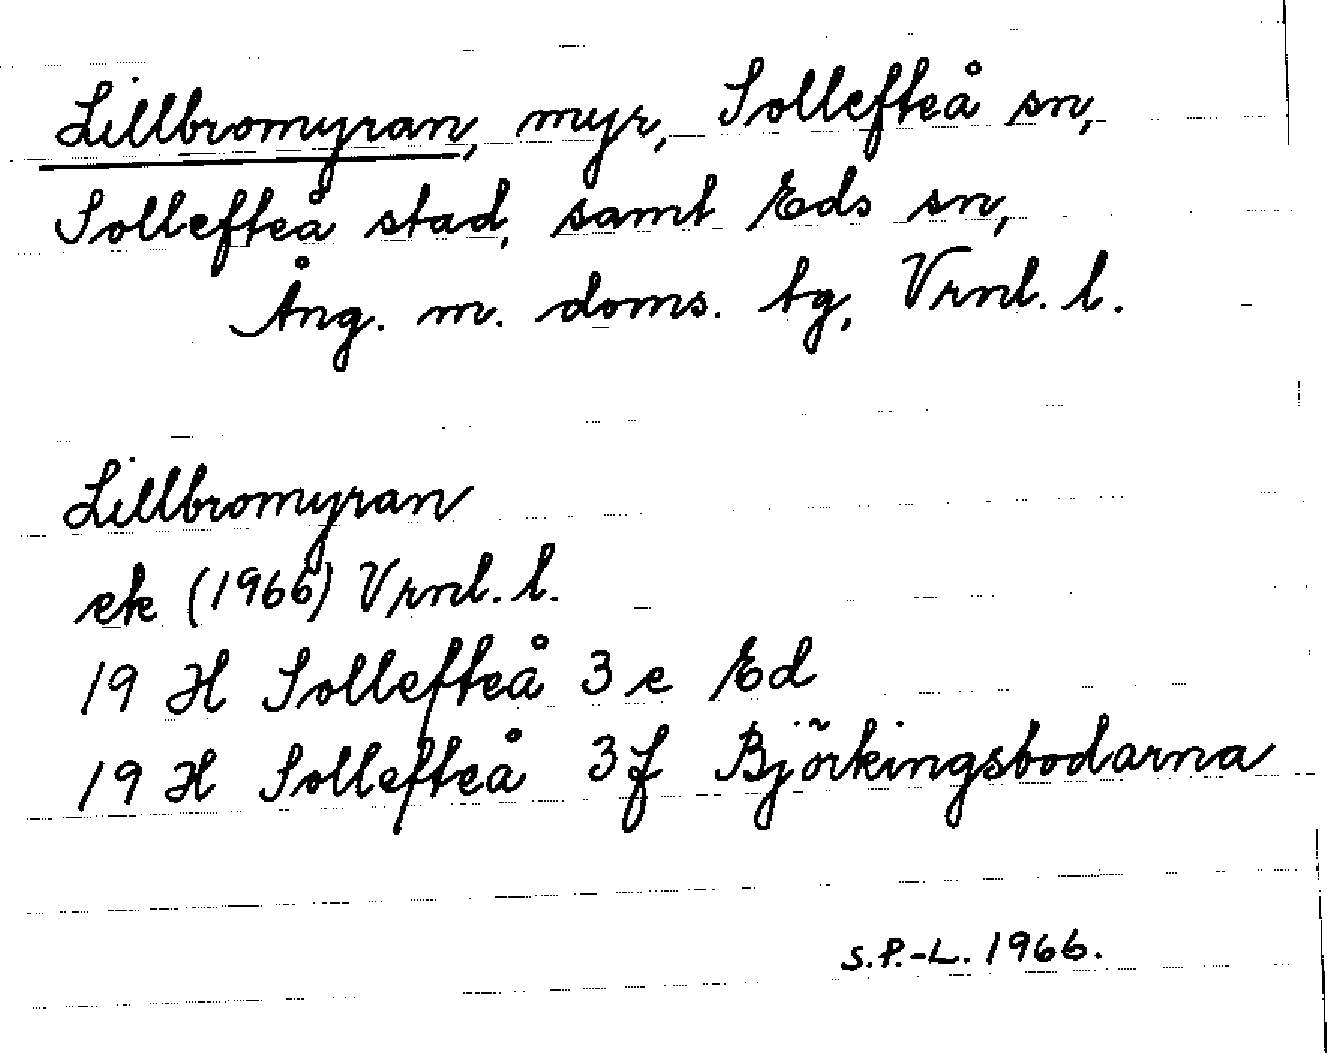 Lillbromyran, myr, Sollefteå sn,
Sollefteå stad, samt Eds sn,
Ång. m. doms. tg, Vrnl. l.
Lillbromyran
ek (1966) Vrnl. l.
19 H Sollefteå 3 e Ed
19 H Sollefteå 3 f Björkingsbodarna
S.P.-L. 1966.